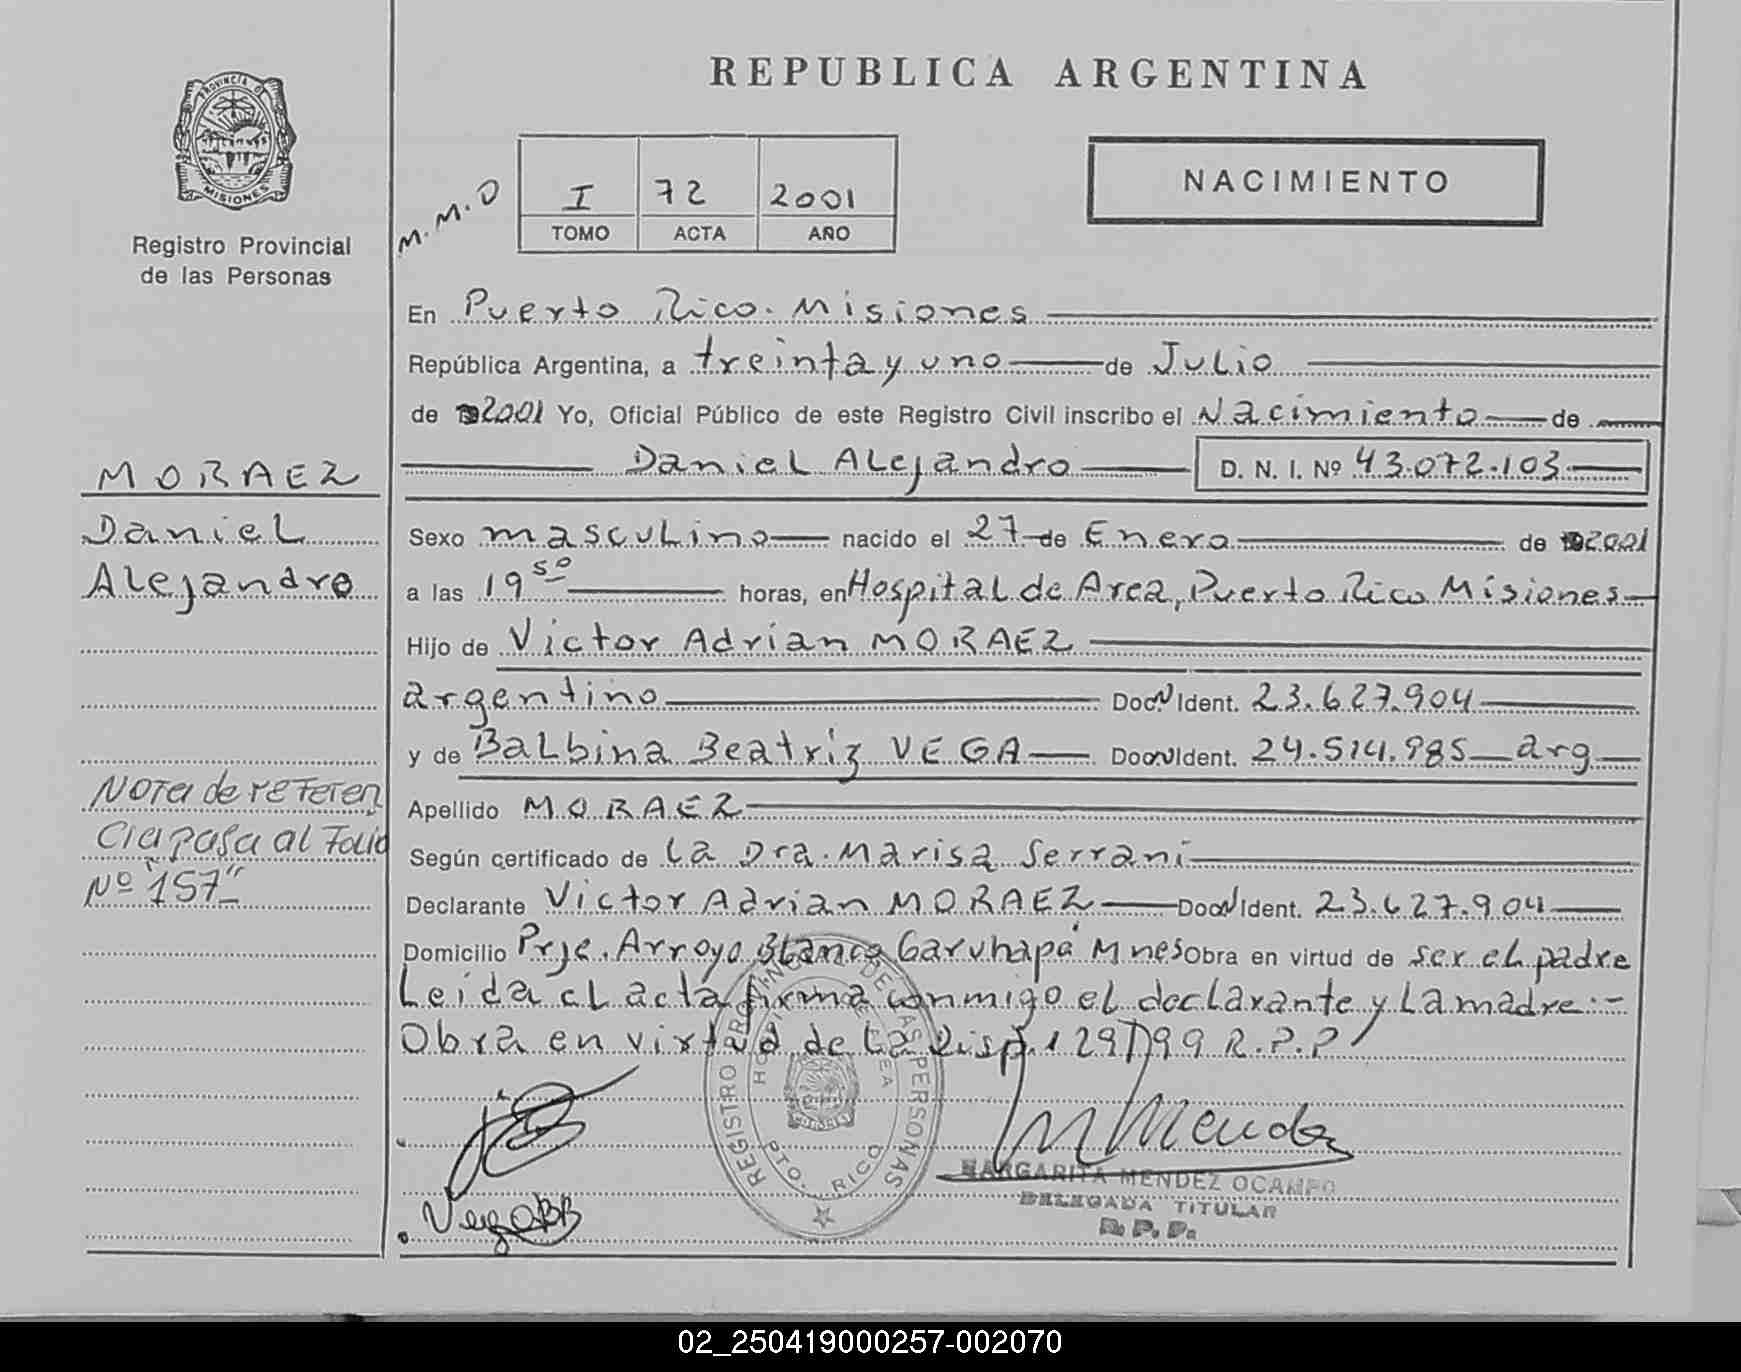 REPUBLICA ARGENTINA
PROVINCIA DE
MISIONES
Registro Provincial
de las Personas
M.M.O
I 72 2001
TOMO ACTA AÑO
NACIMIENTO
En Puerto Rico. Misiones
República Argentina, a treinta y uno de Julio
de 2001 Yo, Oficial Público de este Registro Civil inscribo el Nacimiento de
Daniel Alejandro D. N. I. Nº 43.072.103
MORAEZ
Daniel
Alejandro
Sexo masculino nacido el 27 de Enero de 2001
a las 19 50 horas, en Hospital de Area, Puerto Rico Misiones
Hijo de Victor Adrian MORAEZ
argentino Doc. N Ident. 23.627.904
y de Balbina Beatriz VEGA Doc. N Ident. 24.514.985 arg
Apellido MORAEZ
Según certificado de La Dra. Marisa Serrani
Declarante Victor Adrian MORAEZ Doc. N Ident. 23.627.904
Domicilio Pje. Arroyo Blanco Garuhapá Mnes Obra en virtud de ser el padre
Leida el acta firma conmigo el declarante y La madre:-
Obra en virtud de La Disp. 1297/99 R.P.P
Nota de referen
cia pasa al Folio
Nº "157"
REGISTRO PROVINCIAL DE LAS PERSONAS
HOSPITAL DE AREA
PTO. RICO
Vega BB
M Mendez
MARGARITA MENDEZ OCAMPO
DELEGADA TITULAR
R. P. P.
02_250419000257-002070